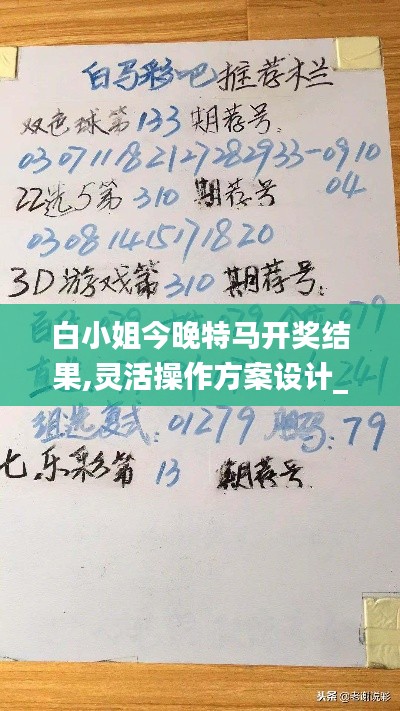 白马彩吧推荐栏
双色球第133期荐号:
030711182127282933-0910
22选5第310期荐号 04
03081415171820
3D游戏第310期荐号:
白小姐今晚特马开奖结
果,灵活操作方案设计_
241
组选复式:01279 胆码:79
七乐彩第13期荐号
头条@老谢说彩